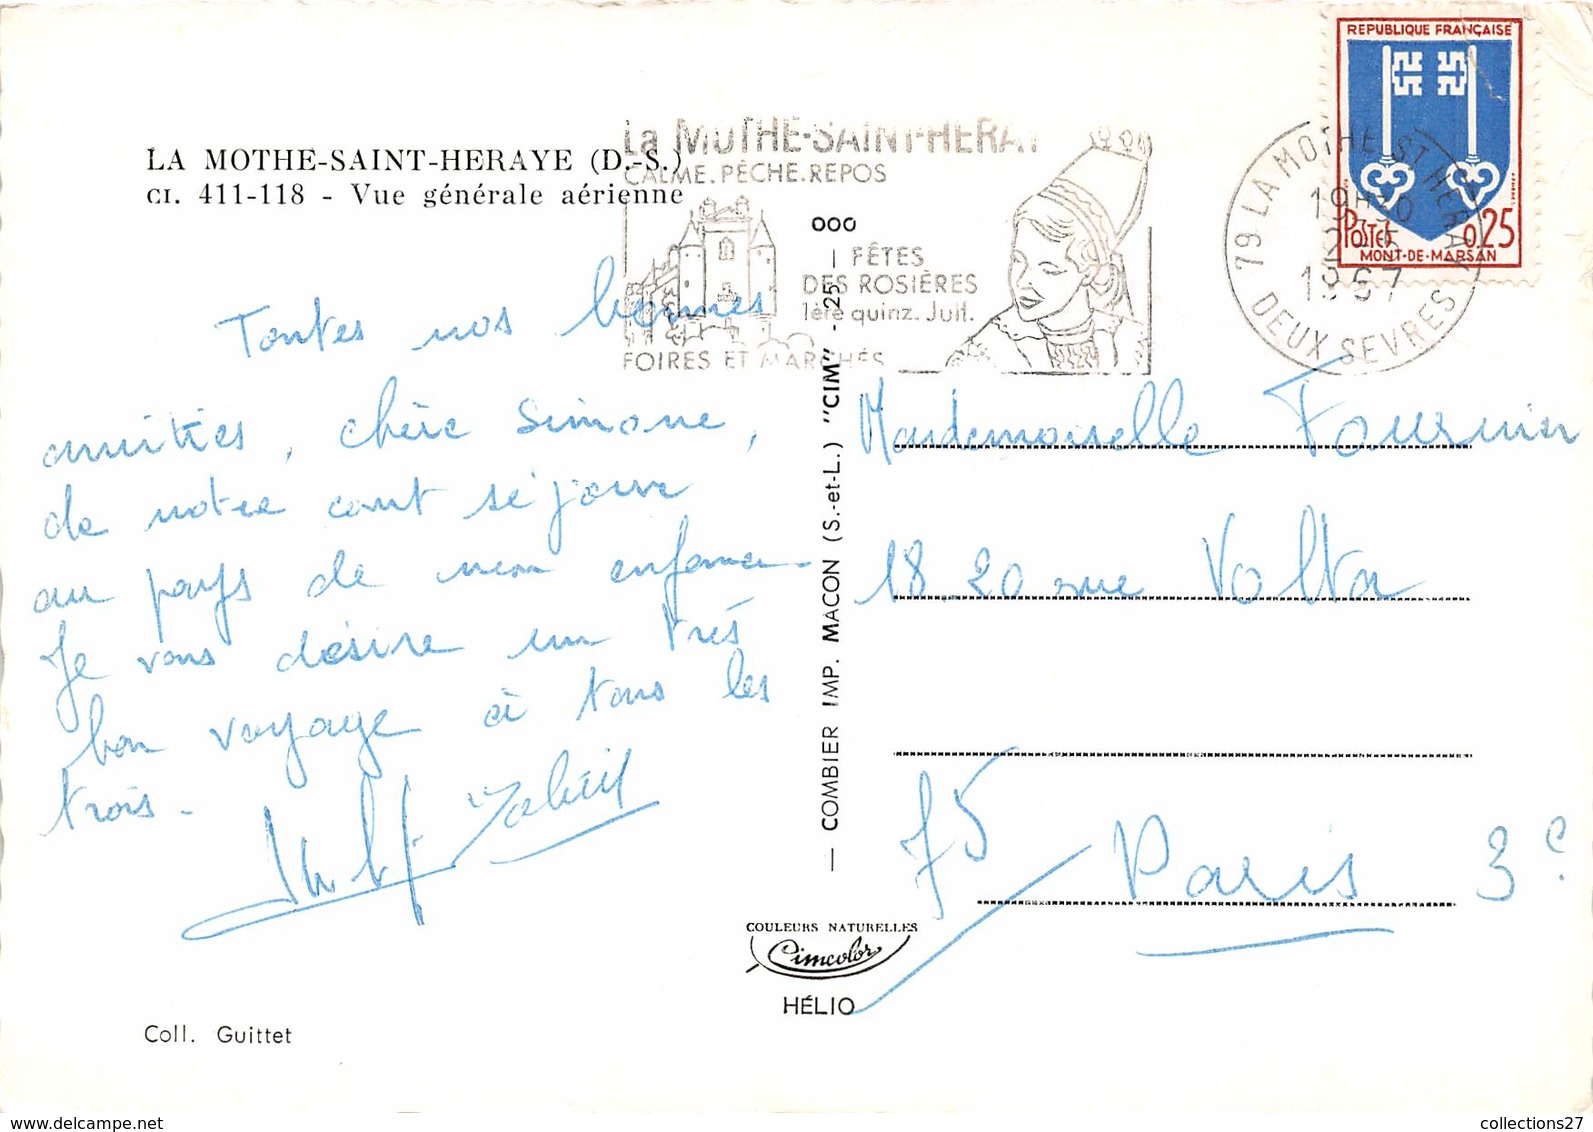 LA MOTHE-SAINT-HERAYE (D.-S.)
CI. 411-118 - Vue générale aérienne
La MOTHE-SAINT-HERAY
CALME.PÊCHE.REPOS
FÊTES
DES ROSIÈRES
1ère quinz. Juil.
FOIRES ET MARCHÉS
REPUBLIQUE FRANÇAISE
POSTES 0,25
MONT-DE-MARSAN
79 LA MOTHE ST HERAY
19H30
1967
DEUX SEVRES
Toutes nos bonnes
amitiés, chère Simone,
de notre court séjour
au pays de mon enfance.
Je vous désire un très
bon voyage à tous les
trois.
Mademoiselle Fournier
18-20 rue Volta
75
Paris 3e
— COMBIER IMP. MACON (S.-et-L.) "CIM" - 25
COULEURS NATURELLES
Cimcolor
HÉLIO
Coll. Guittet
collections27